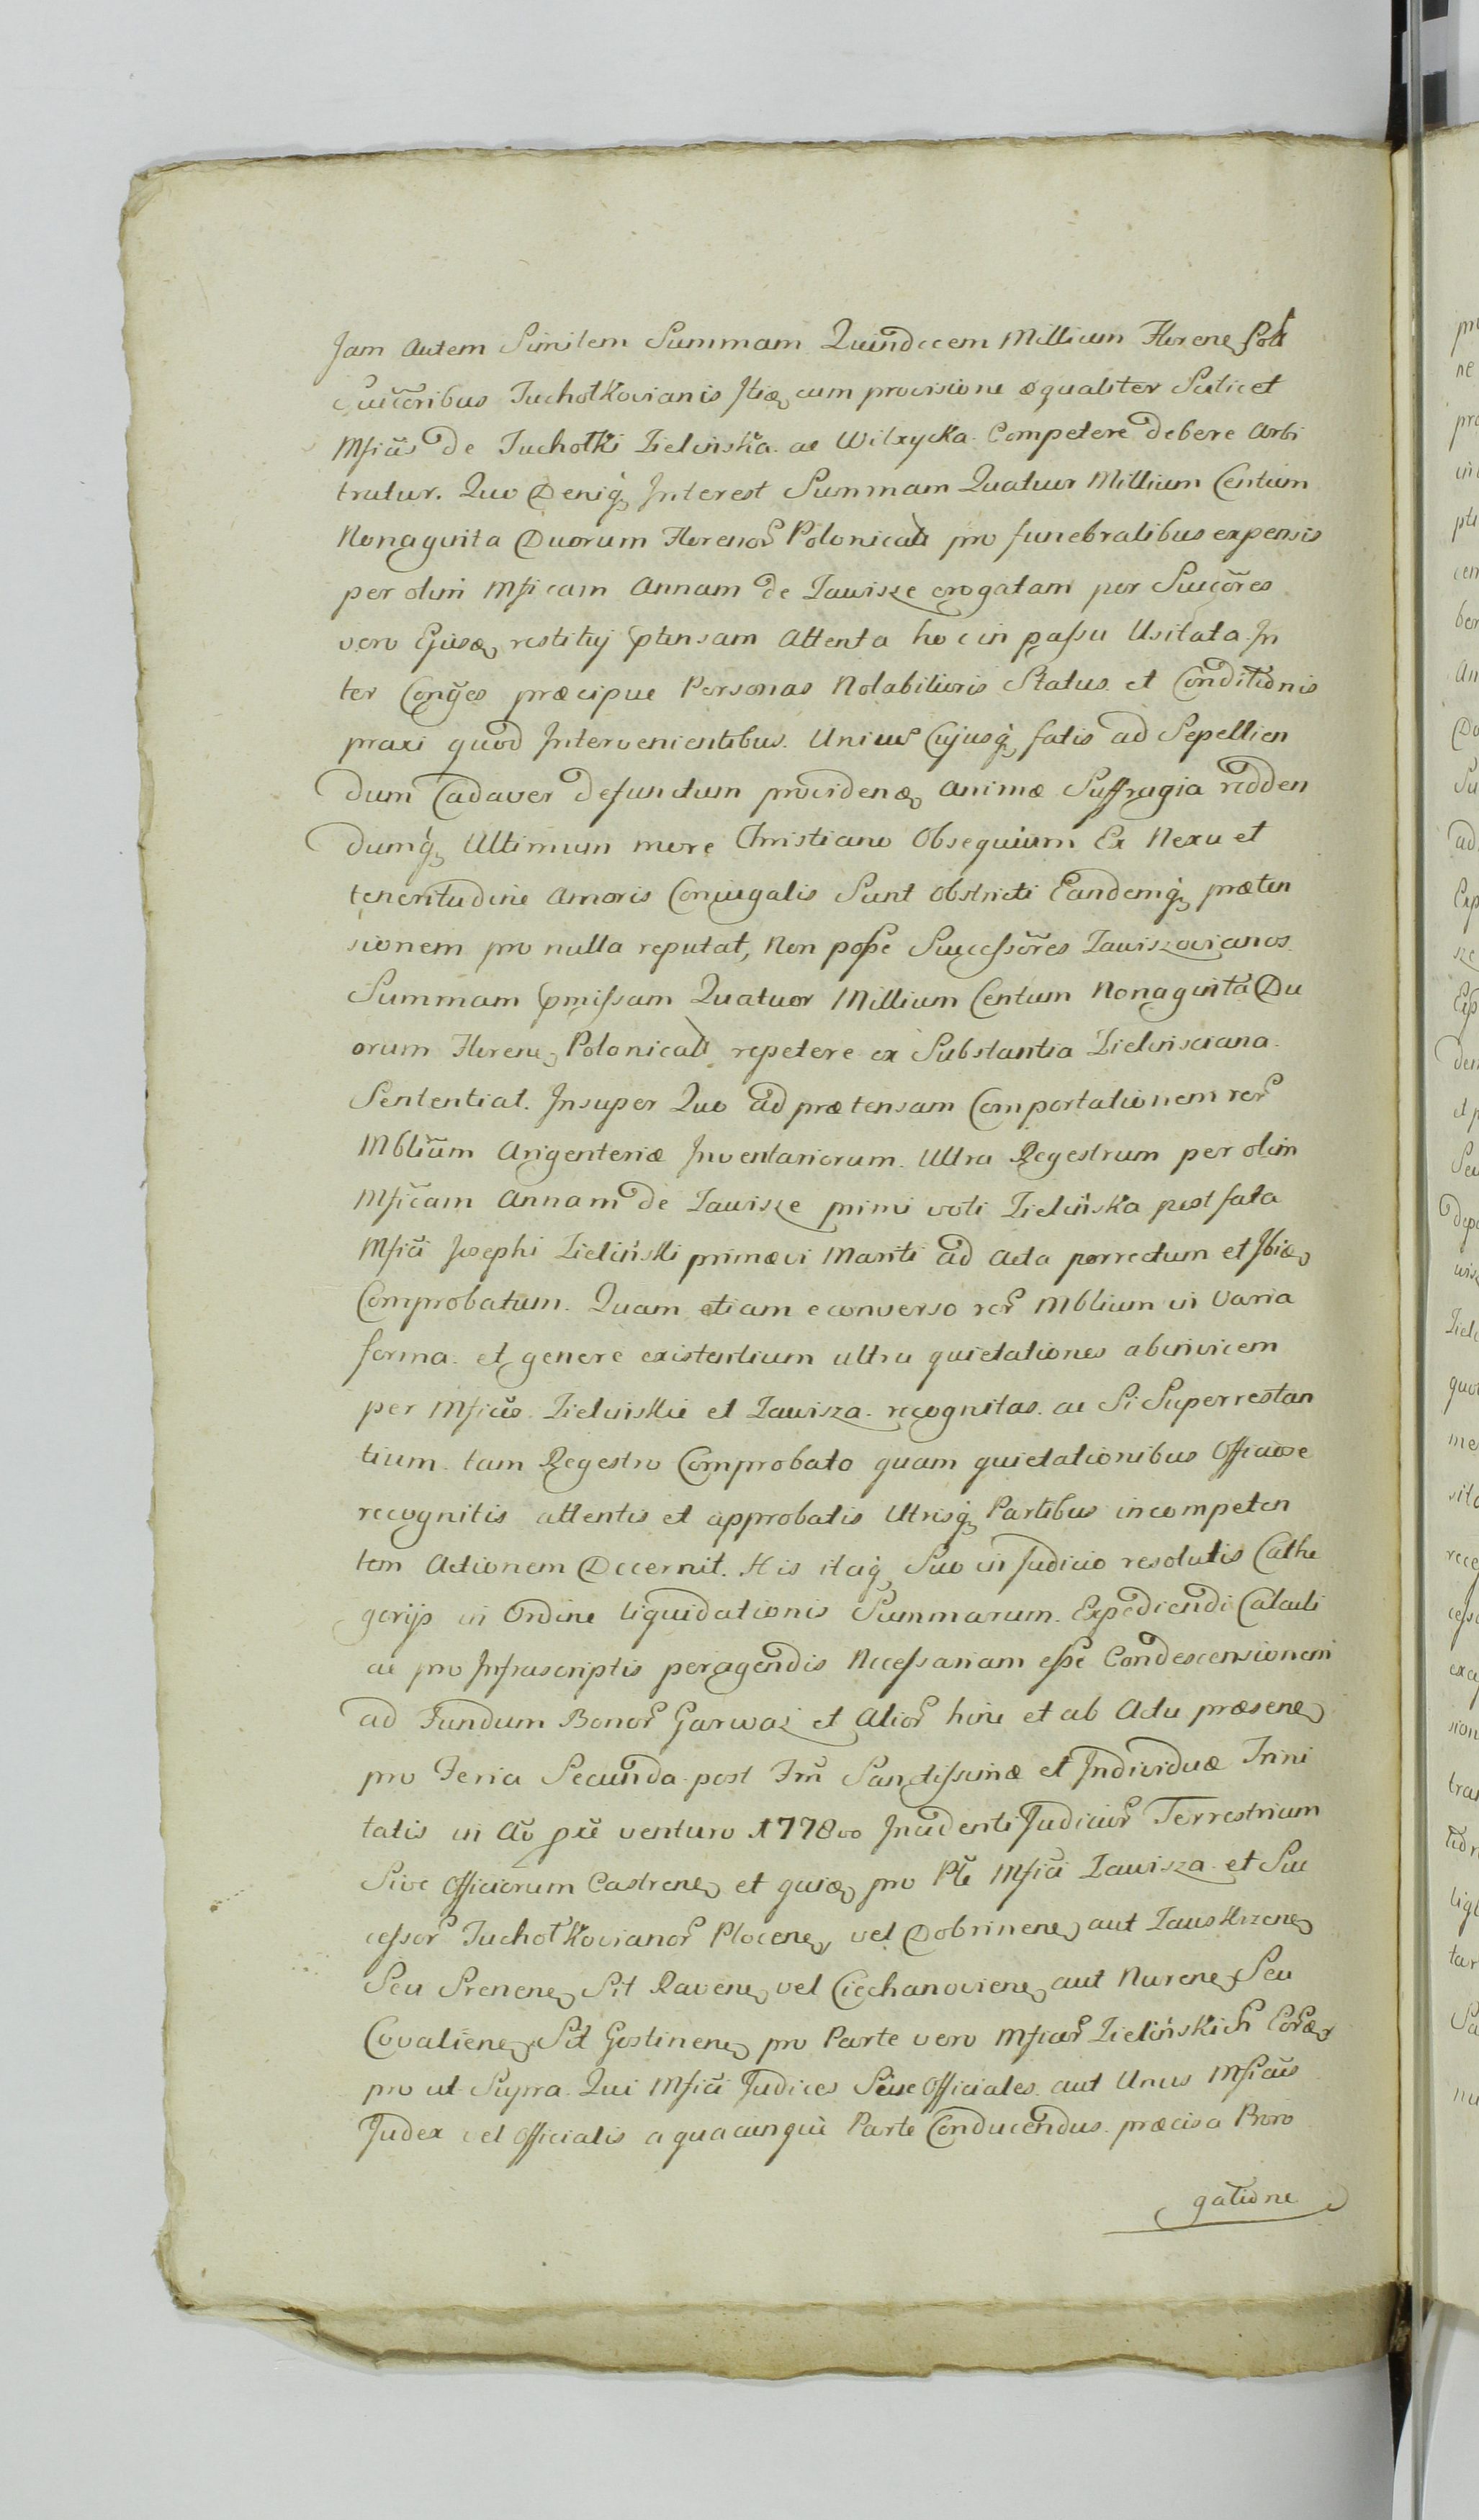 Jam Autem Similem Summam Quindecem Millium Floren Poll
Succoribus Tuchołkovianis Itid cum provisione æqualiter Scilicet
Mficãs de Tuchołki Zielińska ac Wilxycka Competere debere Arbi
tratur. Quo Deniq Interest Summam Quatuor Millium Centum
Nonaginta Duorum Floreno Polonical pro funebralibus expensis
per olim Mficam Annam de Zawisze erogatam per Succores
vero Ejusd restitiuj ptensam Attenta hoc in passu Usitata In
ter Conges præcipue Personas Notabilioris Status et Conditionis
praxi quod Intervenientibus Unius Cujusq fatis ad Sepellien
dum Cadaver defunctum providend Animæ Suffragia redden
dumq Ultimum more Christiano Obsequium Ex Nexu et
teneritudine Amoris Conjugalis Sunt Obstricti Eandemq præten
sionem pro nulla reputat, Non posse Successores Zawiszovianos
Summam pmissam Quatuor Millium Centum Nonaginta Du
orum Floren Polonical repetere ex Substantia Zielinsciana
Sententiat. Insuper Quo ad prætensam Comportationem rer
Mblium Argenteriæ Inventariorum Ultra Regestrum per olim
Mficam Annam de Zawisze primi voti Zielińska post fata
Mfici Josephi Zieliński primævi Mariti ad Acta porrectum et Ibid
Comprobatum. Quam etiam e converso rer Mblium in Varia
forma et genere existentium ultra quietationes abinvicem
per Mficos Zielinskie et Zawisza recognitas ac Si Superrestan
tium tam Regestro Comprobato quam quietationibus Officiose
recognitis attentis et approbatis Utrisq Partibus incompeten
tem Actionem Decernit. His itaq Suo in Judicio resolutis Cathe
gorijs in Ordine liquidationis Summarum Expediendi Calculi
ac pro Infrascriptis peragendis Necessariam esse Condescensionem
ad Fundum Bonor Garwaz et Alior hinc et ab Actu præsen
pro Feria Secunda post Frm Sanctissimæ et Individuæ Trini
tatis in Ao pxe venturo 1778vo Incidenti Judicior Terrestrium
Sive Officiorum Castren et quid pro Pte Mfici Zawisza et Suc
cessor Tuchołkovianor Plocen vel Dobrinen aut Zauskrzen
Seu Srenen Sit Raven vel Ciechanovien aut Nuren Seu
Covalien Sit Gostinen pro Parte vero Mficor Zielińskich
pro ut Supra Qui Mfici Judices Seu Officiales aut Unus Mficus
Judex vel Officialis a quacunque Parte Conducendus præcisa Proro
gatione